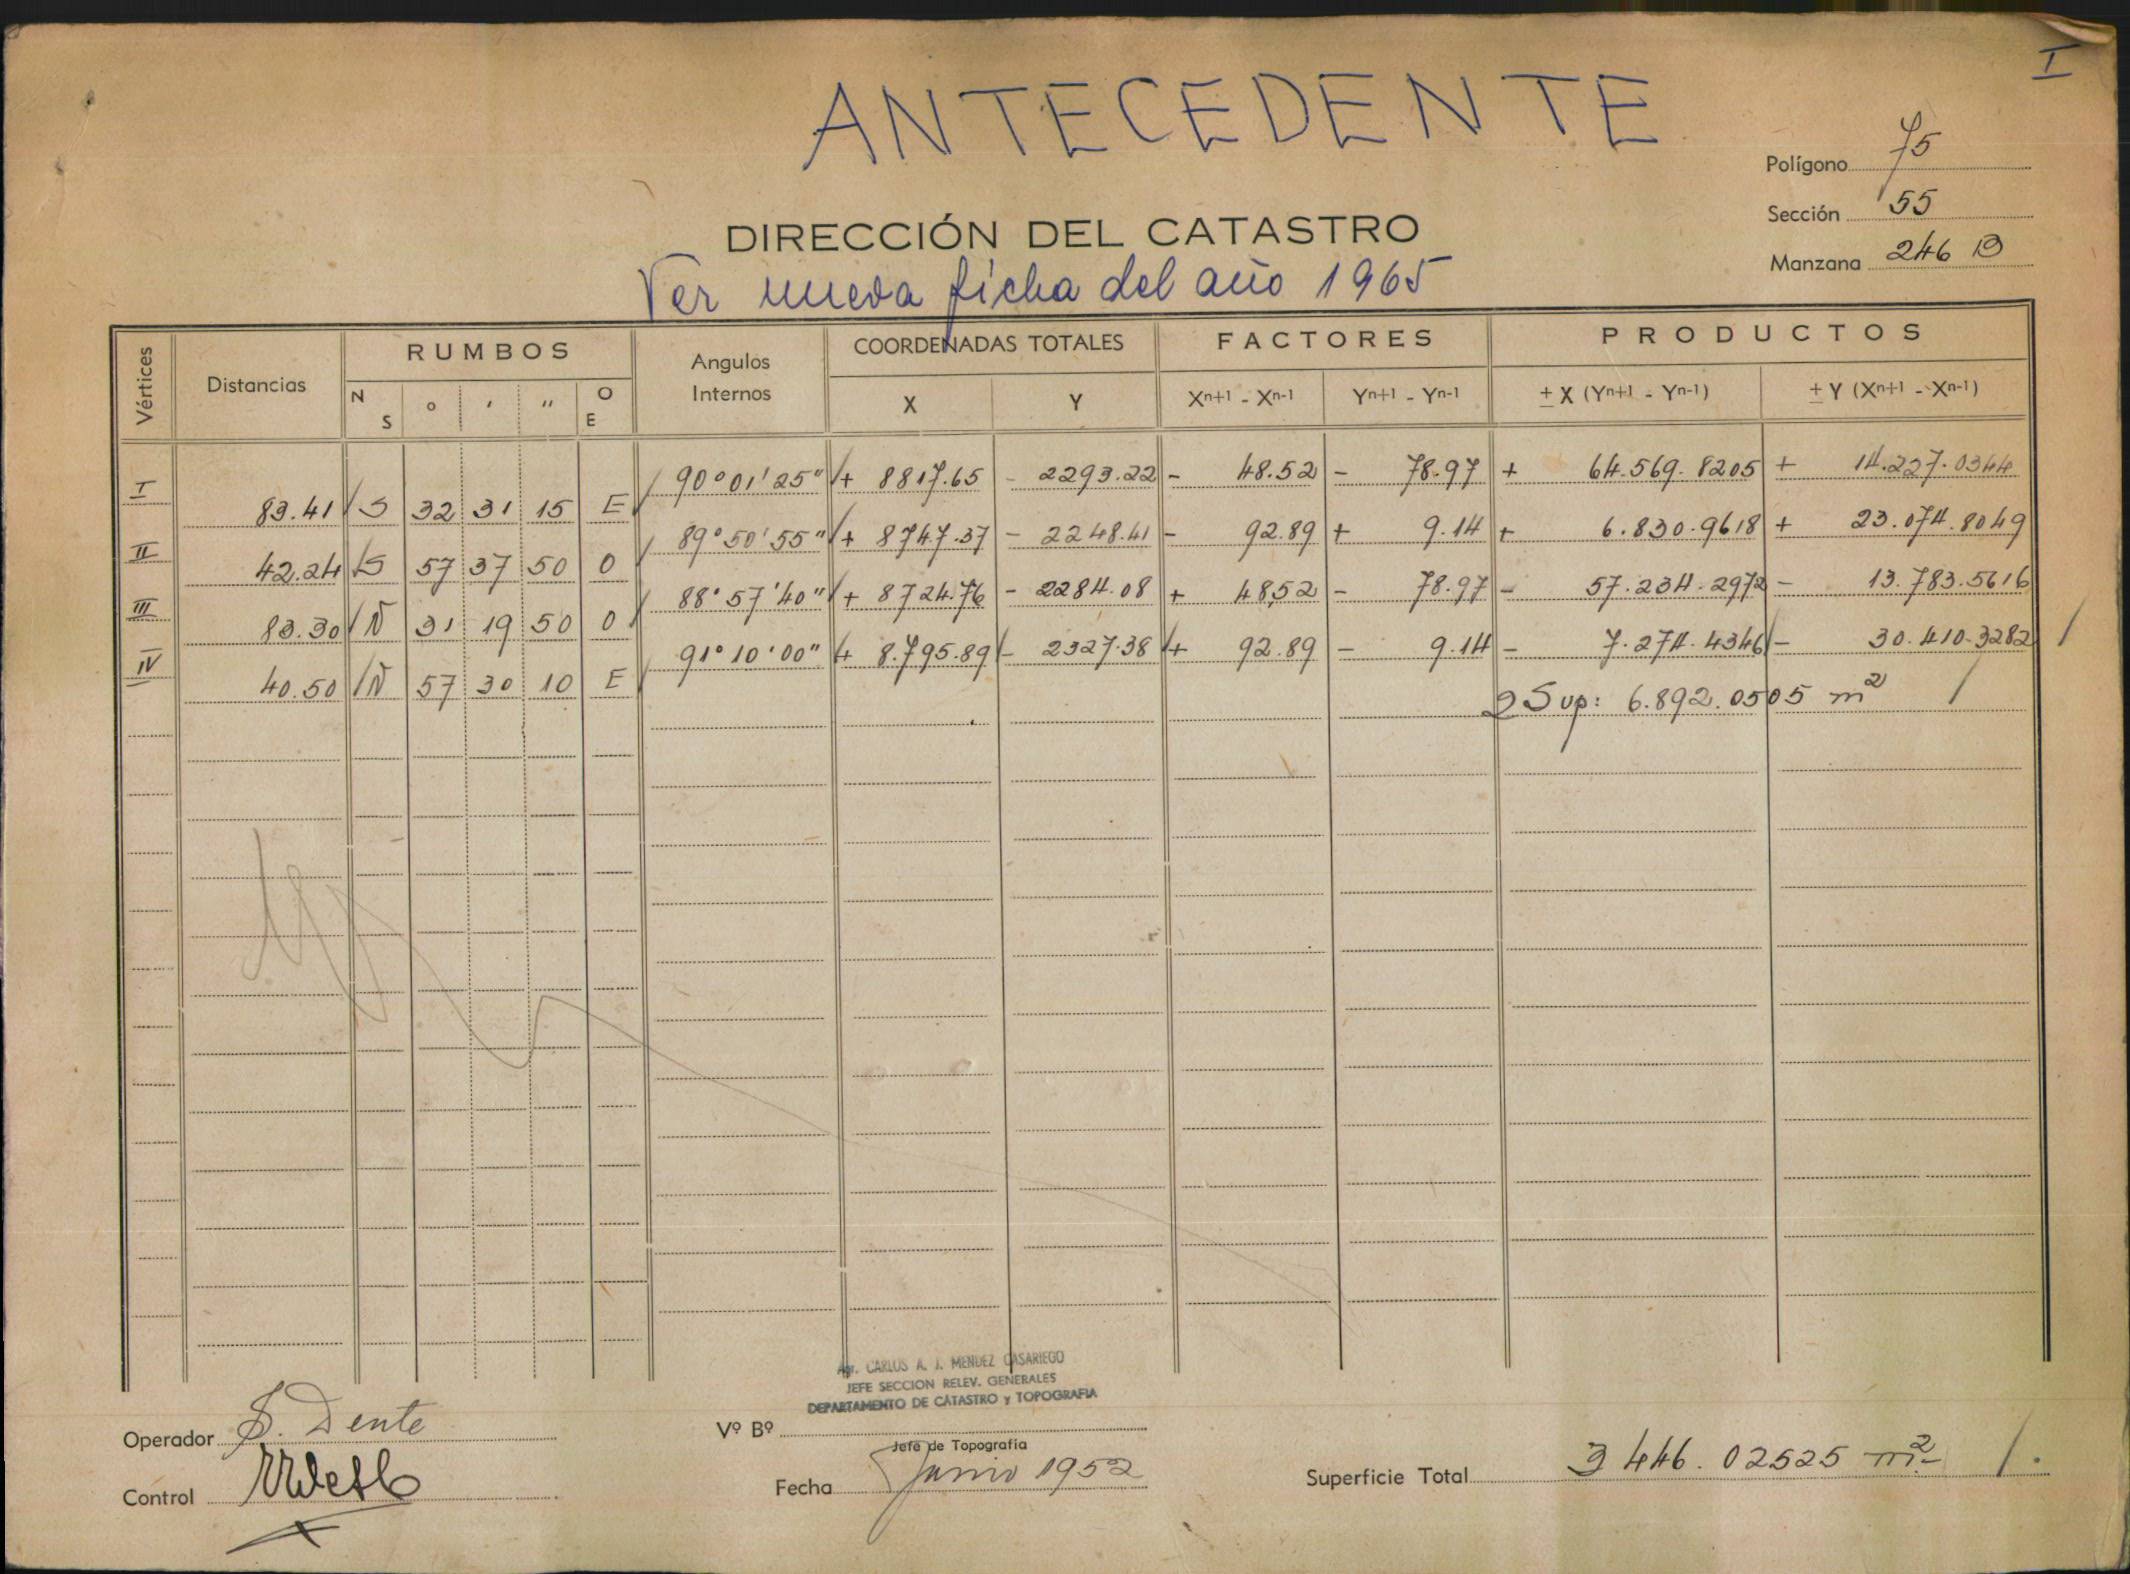 I
ANTECEDENTE
Polígono 75
Sección 55
Manzana 246 B
DIRECCIÓN DEL CATASTRO
Ver nueva ficha del año 1965
Vértices Distancias RUMBOS Angulos Internos COORDENADAS TOTALES FACTORES PRODUCTOS
N S ° ' " O E X Y Xn+1 - Xn-1 Yn+1 - Yn-1 ± X (Yn+1 - Yn-1) ± Y (Xn+1 - Xn-1)
I 90°01'25" + 8817.65 - 2293.22 - 48.52 - 78.97 + 64.569.8205 + 14.227.0344
83.41 S 32 31 15 E
II 89°50'55" + 8747.37 - 2248.41 - 92.89 + 9.14 + 6.830.9618 + 23.074.8049
42.24 S 57 37 50 O
III 88°57'40" + 8724.76 - 2284.08 + 48,52 - 78.97 - 57.234.2972 - 13.783.5616
83.30 N 31 19 50 O
IV 91°10'00" + 8.795.89 - 2327.38 + 92.89 - 9.14 - 7.274.4346 - 30.410.3282 /
40.50 N 57 30 10 E
2 Sup: 6.892.0505 m² /
Agr. CARLOS A. J. MENDEZ CASARIEGO
JEFE SECCION RELEV. GENERALES
DEPARTAMENTO DE CATASTRO y TOPOGRAFIA
Operador S. Dente
Vº Bº
Jefe de Topografía
Control
Fecha Junio 1952
Superficie Total 3446.02525 m² /.